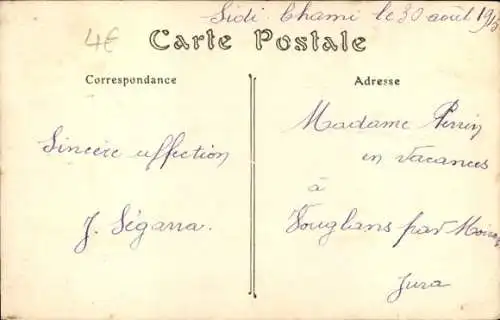 Sidi Chami le 30 août
4€
Carte Postale
Correspondance
Adresse
Sincère affection
J. Ségarra.
Madame Perrin
en vacances
à
Vouglans par
Jura